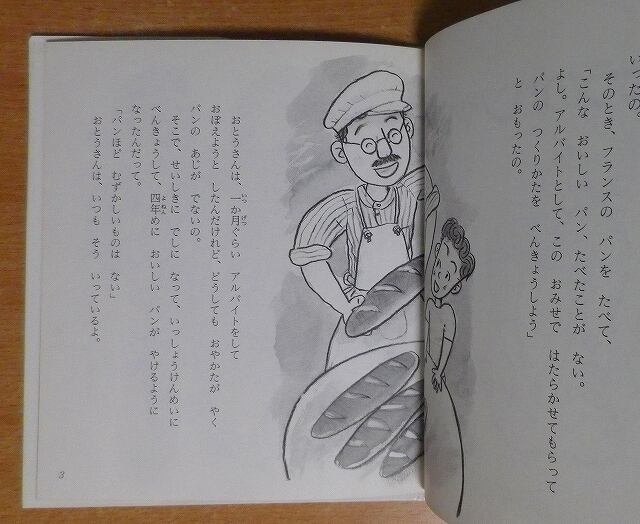 いったの。
そのとき、フランスの パンを たべて、
「こんな おいしい パン、たべたことが ない。
よし。アルバイトとして、この おみせで はたらかせてもらって
パンの つくりかたを べんきょうしよう」
と おもったの。
おとうさんは、一か月ぐらい アルバイトをして
おぼえようと したんだけれど、どうしても おやかたが やく
パンの あじが でないの。
そこで、せいしきに でしに なって、いっしょうけんめいに
べんきょうして、四年めに おいしい パンが やけるように
なったんだって。
「パンほど むずかしいものは ない」
おとうさんは、いつも そう いっているよ。
3